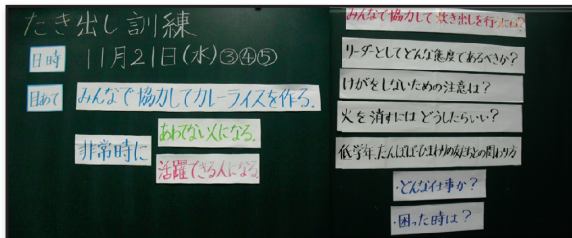 たき出し訓練
日時 11月21日(水)③④⑤
目あて みんなで協力してカレーライスを作る.
非常時に
あわてない人になる.
活躍できる人になる.
みんなで協力して炊き出しを行うには?
リーダーとしてどんな態度であるべきか?
けがをしないための注意は?
火を消すにはどうしたらいい?
低学年,たんぽぽ・ひまわりの友だちとの関わり方
・どんな仕事か?
・困った時は?